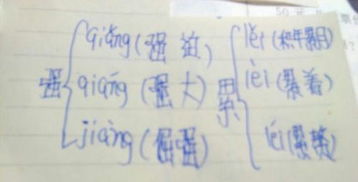 强 qiǎng (强 迫)
qiáng (强 大)
jiàng (倔强)
累 lěi (积年累月)
lèi (累着)
léi (累赘)